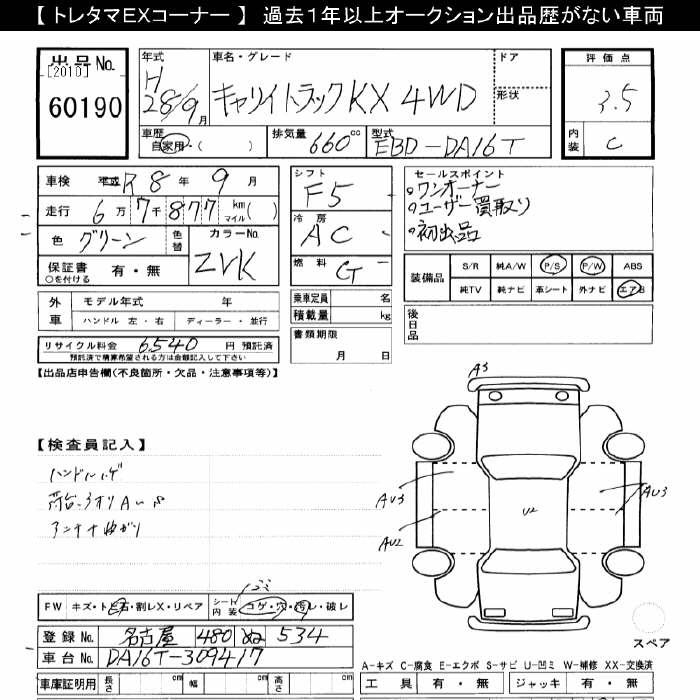 【 トレタマEXコーナー 】 過去1年以上オークション出品歴がない車両
出品No.
[2010]
60190
年式
H 28/9 月
車名・グレード
キャリイトラック KX 4WD
ドア
形状
車歴
自家用・( )
排気量
660 cc
型式
EBD-DA16T
評価点
3.5
内装
C
車検 平成 R 8 年 9 月
走行 6 万 7 千 8 7 7 km マイル ( )
色 グリーン 色替
カラーNo.
ZVK
保証書 有・無
○を付ける
外車 モデル年式 年
ハンドル 左・右 ディーラー・並行
リサイクル料金 6540 円 預託済
預託済で精算希望される方は金額記入して下さい
シフト
F5
冷房
AC
燃料
G
乗車定員 名
積載量 kg
書類期限
月 日
セールスポイント
○ワンオーナー
○ユーザー買取り
○初出品
装備品
S/R 純A/W P/S P/W ABS
純TV 純ナビ 革シート 外ナビ エアB
後日品
【出品店申告欄(不良箇所・欠品・注意事項等)】
【検査員記入】
ハンドルハゲ
アンテナ曲がり
A3
AU3
AU2
U2
AU3
スペア
FW キズ・ト石・割レX・リペア
シート内装 コゲ・穴・汚レ・破レ
登録No. 名古屋 480 ぬ 534
車台No. DA16T-309417
車庫証明用 長さ cm 幅 cm 高さ cm
A-キズ C-腐食 E-エクボ S-サビ U-凹ミ W-補修 XX-交換済
工具 有・無 ジャッキ 有・無